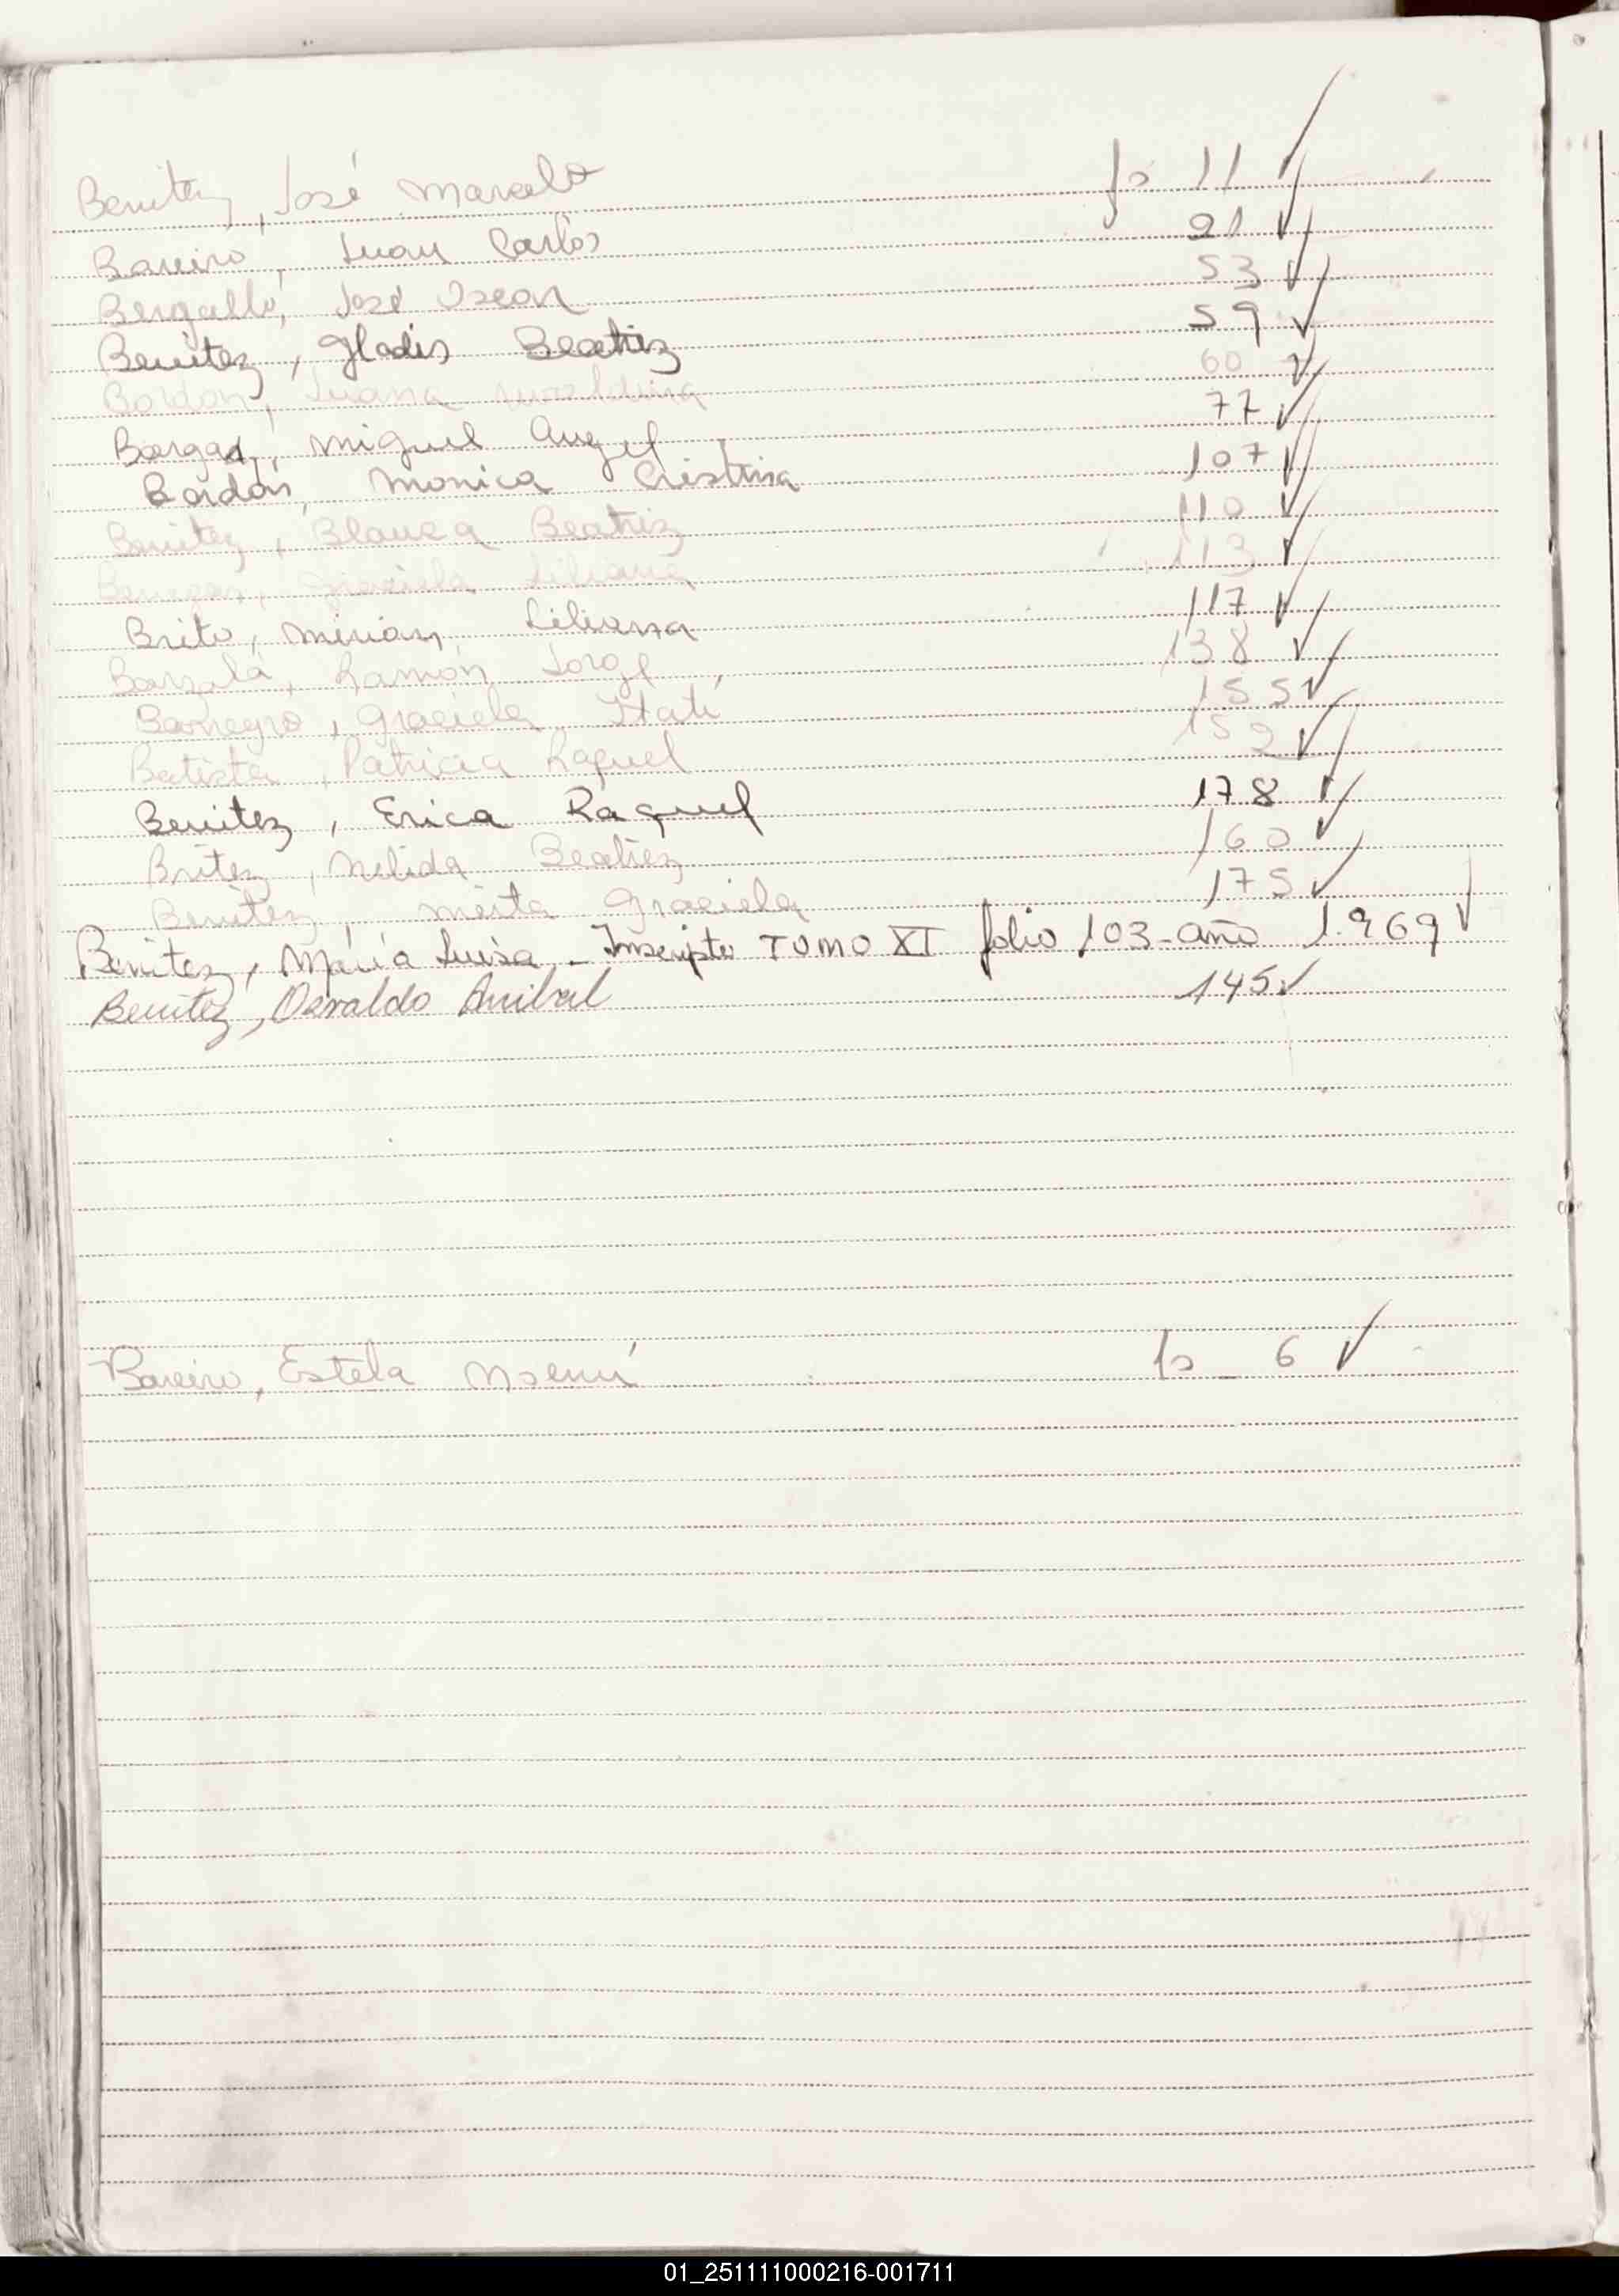 Benitez, José Marcelo fs 11 ✓
Bareiro, Juan Carlos 21 ✓
Bergalló, José Oscar 53 ✓
Benitez, Gladis Beatriz 59 ✓
Bordon, Juana 60 ✓
Borgas, Miguel Angel 77 ✓
Bordón, Monica Cristina 107 ✓
Benitez, Blanca Beatriz 110 ✓
Graciela Liliana 113 ✓
Brito, Mirian Liliana 117 ✓
Barzalá, Ramón Jorge 138 ✓
Barnegro, Graciela Itatí 155 ✓
Batista, Patricia Raquel 152 ✓
Benitez, Erica Raquel 178 ✓
Britez, Nelida Beatriz 160 ✓
Benitez, Mirta Graciela 175 ✓
Benitez, María Luisa - Inscripto TOMO XI folio 103 - año 1.969 ✓
Benitez, Osvaldo Anibal 145 ✓
Bareiro, Estela Noemí fs _ 6 ✓
01_251111000216-001711